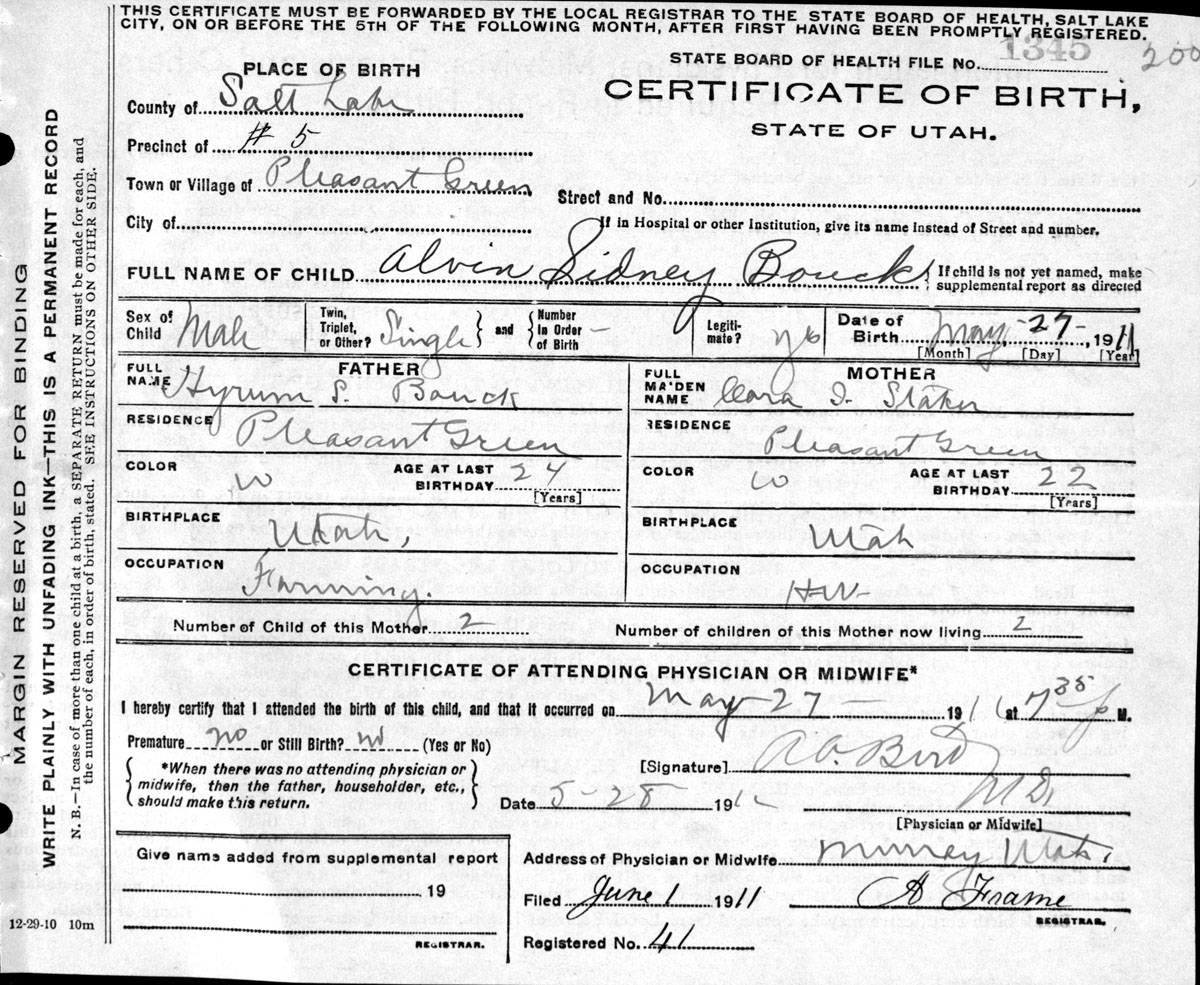 THIS CERTIFICATE MUST BE FORWARDED BY THE LOCAL REGISTRAR TO THE STATE BOARD OF HEALTH, SALT LAKE
CITY, ON OR BEFORE THE 5TH OF THE FOLLOWING MONTH, AFTER FIRST HAVING BEEN PROMPTLY REGISTERED.
STATE BOARD OF HEALTH FILE No. 1345 200
CERTIFICATE OF BIRTH,
STATE OF UTAH.
PLACE OF BIRTH
County of Salt Lake
Precinct of # 5
Town or Village of Pleasant Green
Street and No.
City of
If in Hospital or other Institution, give its name instead of Street and number.
FULL NAME OF CHILD Alvin Sidney Bouck { If child is not yet named, make
supplemental report as directed
Sex of Child Male
Twin, Triplet, or Other? Single } and { Number in Order of Birth –
Legiti-mate? Yes
Date of Birth May - 27 -, 1911
[Month] [Day] [Year]
FATHER
FULL NAME Hyrum S. Bouck
RESIDENCE Pleasant Green
COLOR W
AGE AT LAST BIRTHDAY 24
[Years]
BIRTHPLACE Utah,
OCCUPATION Farming.
MOTHER
FULL MAIDEN NAME Clara I. Staker
RESIDENCE Pleasant Green
COLOR W
AGE AT LAST BIRTHDAY 22
[Years]
BIRTHPLACE Utah
OCCUPATION H-W-
Number of Child of this Mother 2
Number of children of this Mother now living 2
CERTIFICATE OF ATTENDING PHYSICIAN OR MIDWIFE*
I hereby certify that I attended the birth of this child, and that it occurred on May - 27 - 1911 at 7 35 p M.
Premature no or Still Birth? no (Yes or No)
{ *When there was no attending physician or
midwife, then the father, householder, etc.,
should make this return. }
[Signature] Bird
M D.
Date 5-28- 191
[Physician or Midwife]
Give name added from supplemental report
19
REGISTRAR.
Address of Physician or Midwife Murray Utah.
Filed June 1 1911 A Frame
REGISTRAR.
Registered No. 41
12-29-10 10m
MARGIN RESERVED FOR BINDING
WRITE PLAINLY WITH UNFADING INK—THIS IS A PERMANENT RECORD
N. B.—In case of more than one child at a birth, a SEPARATE RETURN must be made for each, and
the number of each, in order of birth, stated. SEE INSTRUCTIONS ON OTHER SIDE.